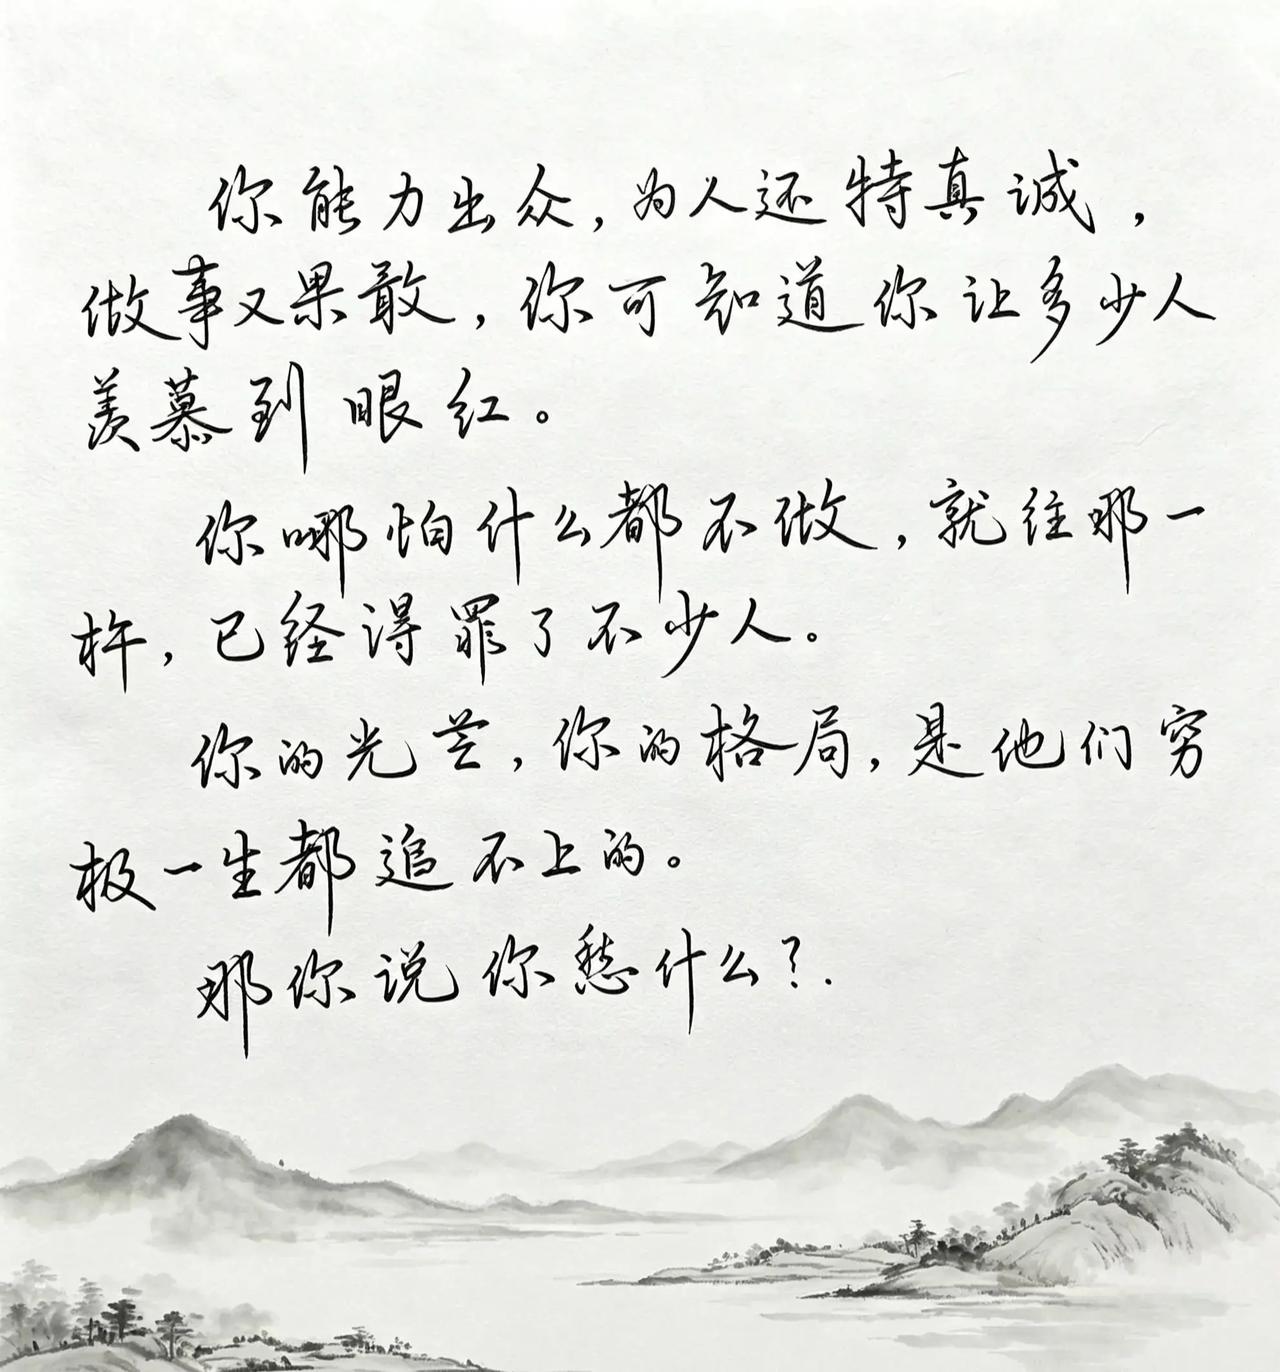 你能力出众，为人还特真诚，
做事又果敢，你可知道你让多少人
羡慕到眼红。
你哪怕什么都不做，就往那一
杵，已经得罪了不少人。
你的光芒，你的格局，是他们穷
极一生都追不上的。
那你说你愁什么？.